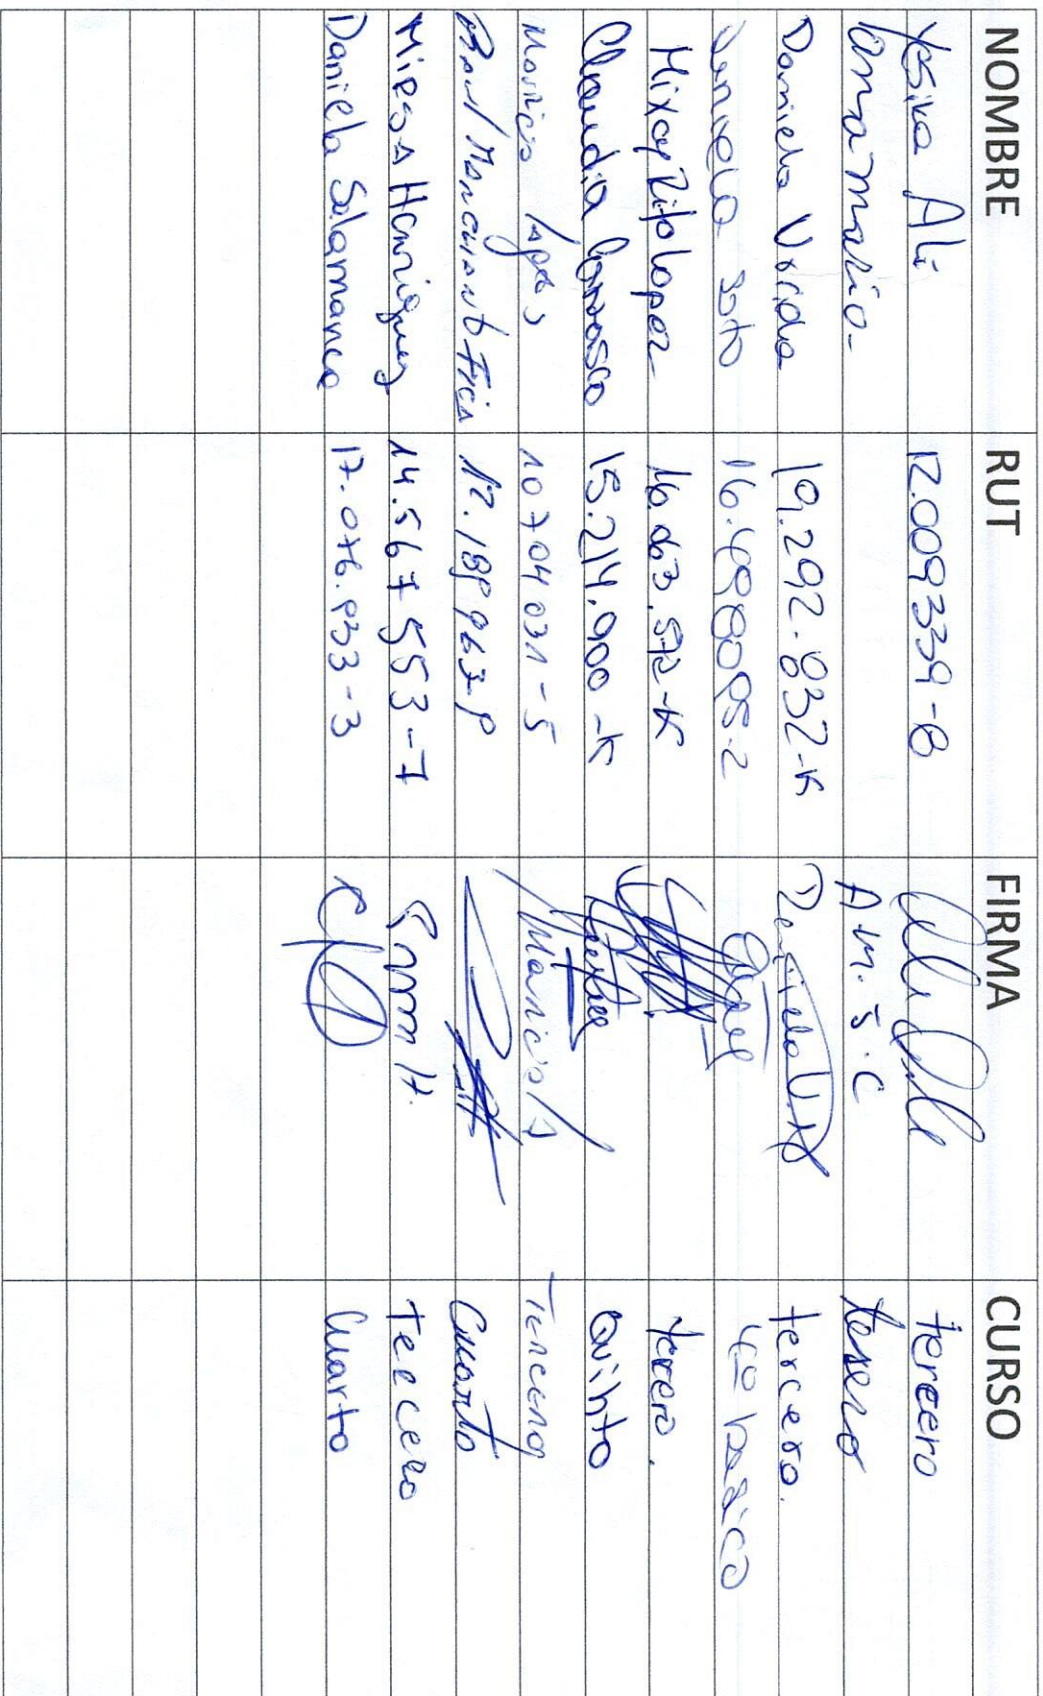 NOMBRE RUT FIRMA CURSO
Yesika Ali 12.0093339-8 tercero
Ana María A.M.S.C tercero
Daniela Urida 19.292.832-K Daniela U. tercero.
Daniela Soto 16.498095-2 4º basico
López 16.063.572-K tercero.
Claudia Carrasco 15.214.900-K Quinto
Maricia Lagos 10704031-5 Tercero
Cuarto
Henriquez 14.567553-7 H. Tercero
Daniela Salamanca 17.076.933-3 Cuarto